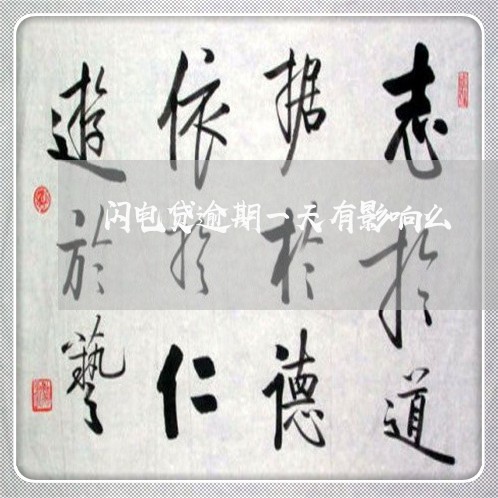 志於道
据於德
依於仁
遊於藝
闪电贷逾期一天有影响么